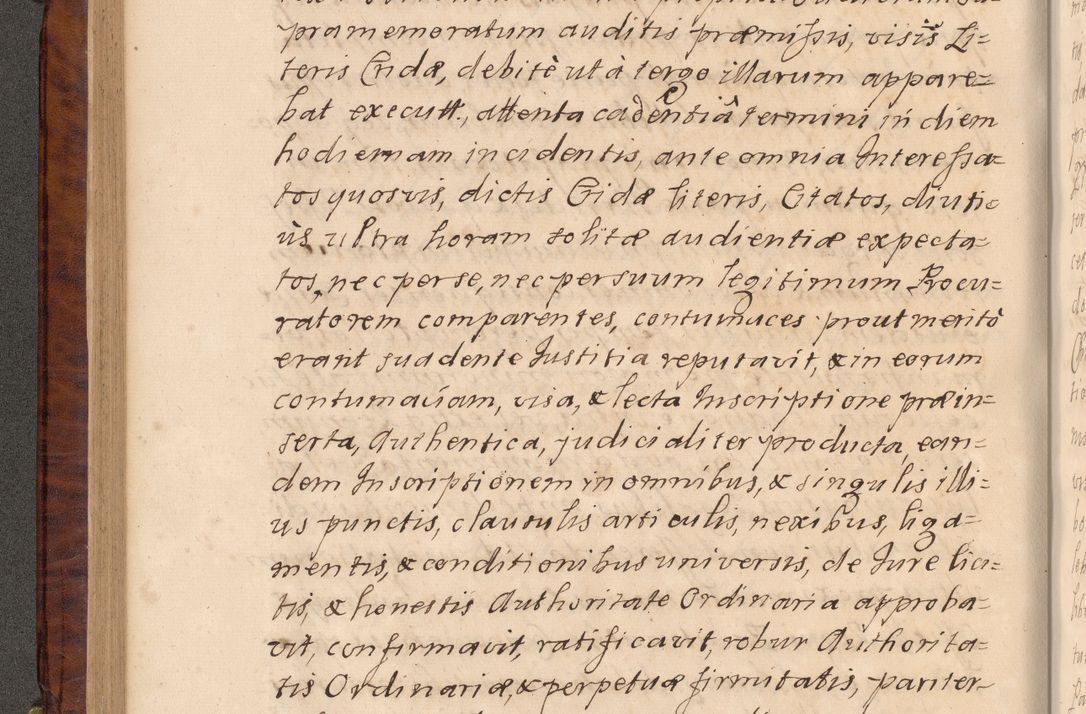 pramemoratum auditis præmissis, visis Li=
teris Cridæ, debitè ut à tergo illarum appare=
bat executt., attenta cadentiâ termini in diem
hodiernam incidentis, ante omnia Interessa=
tos quosvis, dictis Cridæ literis, Citatos, diuti=
ùs, ultra horam solitæ audientiæ expecta=
tos, nec per se, nec per suum legitimum Procu=
ratorem comparentes, contumaces prout meritò
erant suadente Iustitia reputavit, & in eorum
contumaciam, visa, & lecta Inscriptione præin=
serta, Authentica, judicialiter producta, ean=
dem Inscriptionem in omnibus, & singulis illi=
us punctis, clausulis articulis, nexibus, liga=
mentis, & conditionibus universis, de Iure lici=
tis, & honestis Authoritate Ordinaria approba=
vit, confirmavit, ratificavit, robur Authorita=
tis Ordinariæ, & perpetuæ firmitatis, pariter